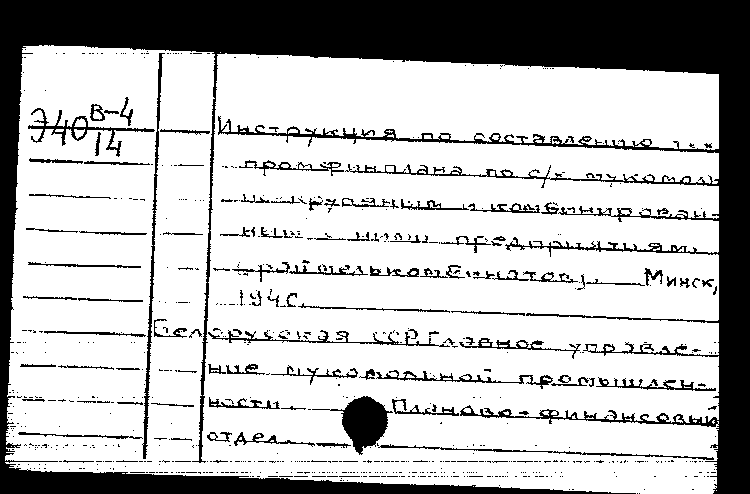 Э40 В-4
14
Инструкция по составлению
промфинплана по с/х мукомоль
но-крупяным и комбинирован-
ным с ними предприятиям.
Минск,
194
Белорусская ССР. Главное управле-
ние мукомольной промышлен-
ности. Планово-финансовый
отдел.